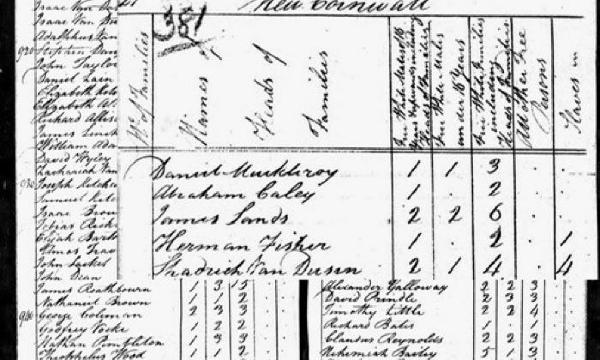 New Cornwall
381
No of Families
Names of Heads of Families
Free White Males of 16 Years Upwards including Heads of Families
Free White Males under 16 Years
Free White Females including Heads of Families
All other Free Persons
Slaves in
Daniel Muckleroy 1 1 3
Abraham Caley 1 . 2
James Sands 2 2 6
Herman Fisher 1 . 2 . 1
Shadrich Van Dusen 2 1 4 . 4
Isaac Van
Isaac Van
Adolphus Van
920 Stephen
John Taylor
Daniel Lain
Elizabeth
Elizabeth
Richard Allis
James
William Ada
David Wyley
Zachariah Van
Joseph Ketcher
Samuel
Isaac Brow
Tobias
Elijah Bart
John
John Dean
James Reathbourn 1 3 5
Nathaniel Brown 1 1 2
George Coleman 2 3 3
Godfrey 1 2 2
Nathan Pimpleton 1 3 3
Theophelus Wood 1 1 2
Alexander Galloway 2 2 3
David Prindle 2 3 3
Timothy Little 2 2 4
Richard Bates 1 . 1
Claudus Reynolds 2 2 3
Nehemiah Bailey 5 . 3